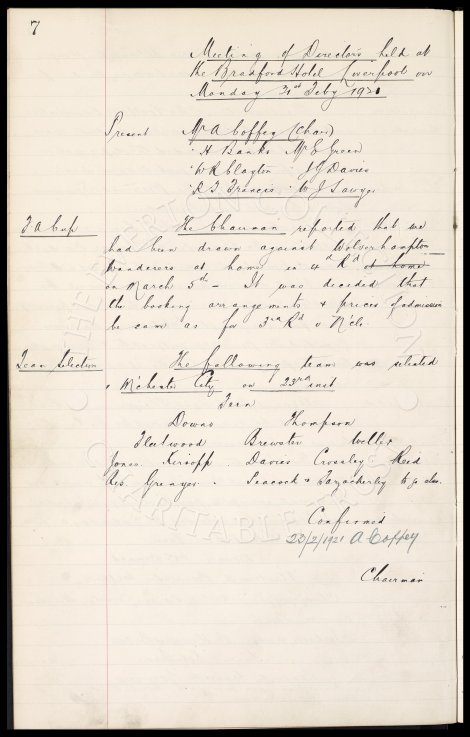 7
Meeting of Directors held at
the Bradford Hotel Liverpool on
Monday 21st Feby 1921
Present Mr A Coffey (Chair)
" H Banks Mr E Green
" W R Clayton " J G Davies
" R T Francis " W J Sawyer
F A Cup The Chairman reported that we
had been drawn against Wolverhampton
Wanderers at home in 4th Rd at home
on March 5th – It was decided that
the booking arrangements & prices of admission
be same as for 3rd Rd v N'cle.
Team Selection The following team was selected
v M'chester City on 23rd inst
Fern
Downs Thompson
Fleetwood Brewster Weller
Jones Kirsopp Davies Crossley Reed
Res Grenyer Peacock & Fazackerley to go also.
Confirmed
28/2/1921 A Coffey
Chairman
THE EVERTON COLLECTION
CHARITABLE TRUST